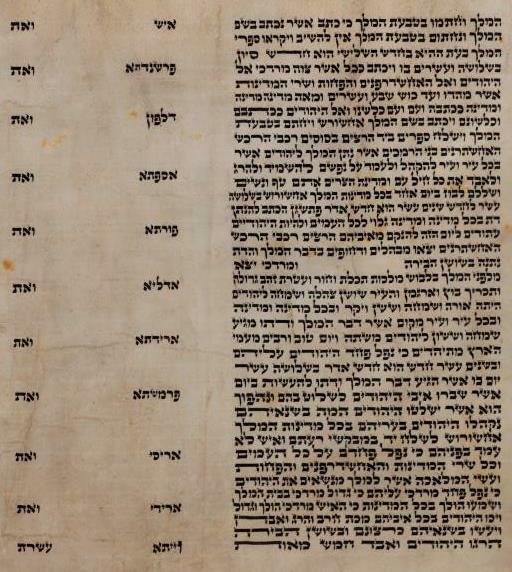 המלך וחתמו בטבעת המלך כי כתב אשר נכתב בשם
המלך ונחתום בטבעת המלך אין להשיב ויקראו ספרי
המלך בעת ההיא בחדש השלישי הוא חדש סיון
בשלושה ועשרים בו ויכתב ככל אשר צוה מרדכי אל
היהודים ואל האחשדרפנים והפחות ושרי המדינות
אשר מהדו ועד כוש שבע ועשרים ומאה מדינה מדינה
ומדינה ככתבה ועם ועם כלשנו ואל היהודים ככתבם
וכלשונם ויכתב בשם המלך אחשורש ויחתם בטבעת
המלך וישלח ספרים ביד הרצים בסוסים רכבי הרכש
האחשתרנים בני הרמכים אשר נתן המלך ליהודים אשר
בכל עיר ועיר להקהל ולעמד על נפשם להשמיד ולהרג
ולאבד את כל חיל עם ומדינה הצרים אתם טף ונשים
ושללם לבוז ביום אחד בכל מדינות המלך אחשורוש בשלושה
עשר לחדש שנים עשר הוא חדש אדר פתשגן הכתב להנתן
דת בכל מדינה ומדינה גלוי לכל העמים ולהיות היהודיים
עתודים ליום הזה להנקם מאיביהם הרצים רכבי הרכש
האחשתרנים יצאו מבהלים ודחופים בדבר המלך והדת
נתנה בשושן הבירה ומרדכי יצא
מלפני המלך בלבוש מלכות תכלת וחור ועטרת זהב גדולה
ותכריך בוץ וארגמן והעיר שושן צהלה ושמחה ליהודים
היתה אורה ושמחה וששן ויקר ובכל מדינה ומדינה
ובכל עיר ועיר מקום אשר דבר המלך ודתו מגיע
שמחה וששון ליהודים משתה ויום טוב ורבים מעמי
הארץ מתיהדים כי נפל פחד היהודים עליהם
ובשנים עשר חדש הוא חדש אדר בשלושה עשר
יום בו אשר הגיע דבר המלך ודתו להעשות ביום
אשר שברו איבי היהודים לשלוט בהם ונהפוך
הוא אשר ישלטו היהודים המה בשנאיהם
נקהלו היהודים בעריהם בכל מדינות המלך
אחשורוש לשלח יד במבקשי רעתם ואיש לא
עמד בפניהם כי נפל פחדם על כל העמים
וכל שרי המדינות והאחשדרפנים והפחות
ועשי המלאכה אשר למלך מנשאים את היהודים
כי נפל פחד מרדכי עליהם כי גדול מרדכי בבית המלך
ושמעו הולך בכל המדינות כי האיש מרדכי הולך וגדול
ויכו היהודים בכל איביהם מכת חרב והרג ואבדן
ויעשו בשנאיהם כרצונם ובשושן הבירה
הרגו היהודים ואבד חמש מאות
איש ואת
פרשנדתא ואת
דלפון ואת
אספתא ואת
פורתא ואת
אדליא ואת
ארידתא ואת
פרמשתא ואת
אריסי ואת
ארידי ואת
ויזתא עשרת